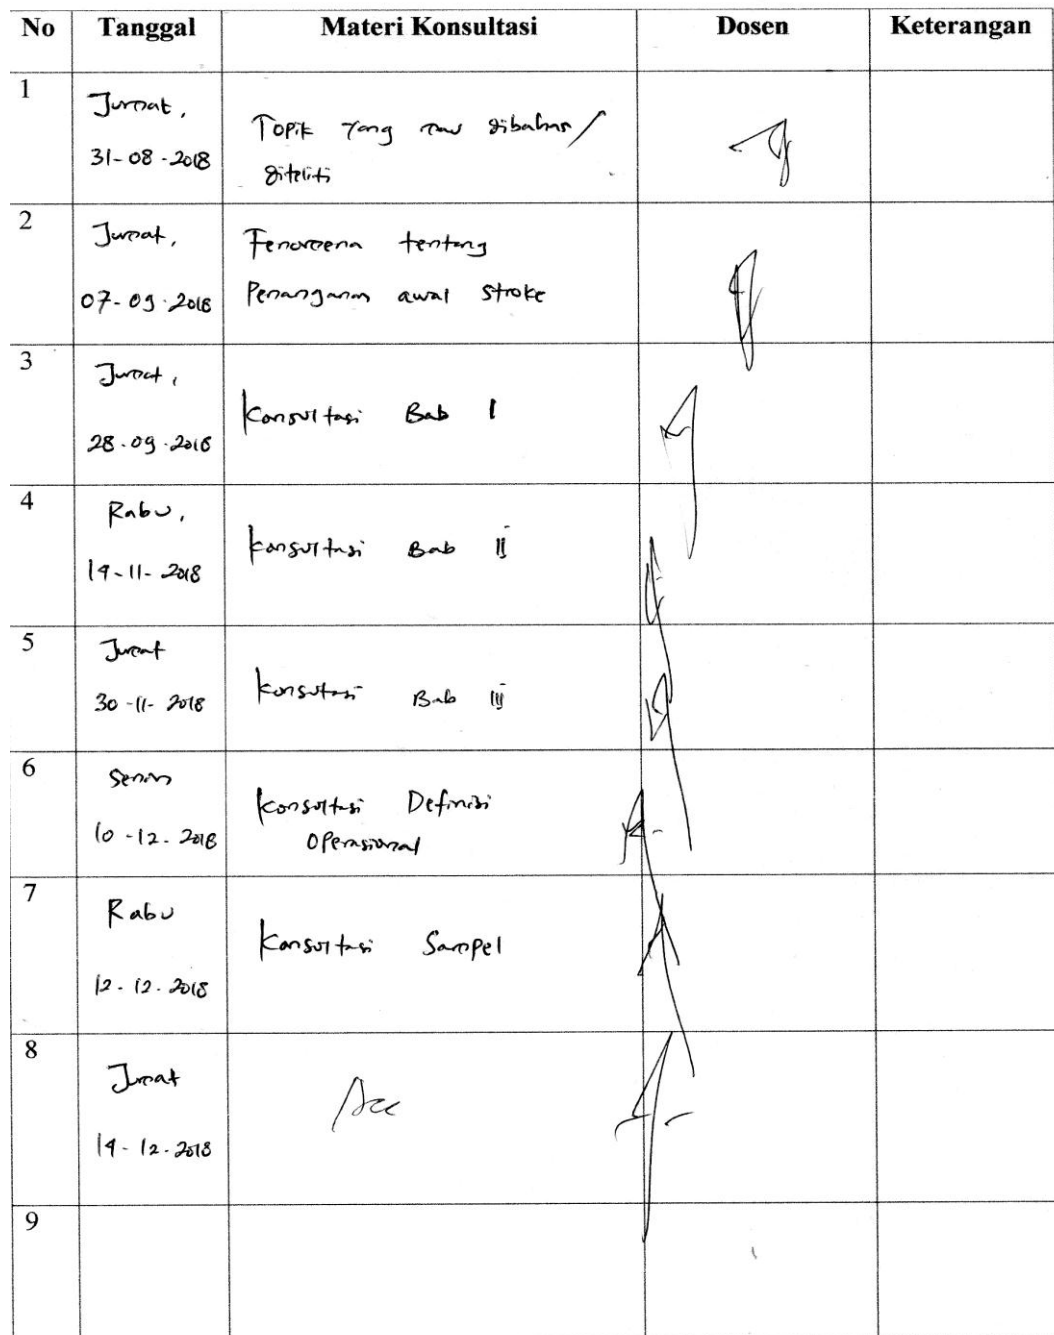 No Tanggal Materi Konsultasi Dosen Keterangan
1 Jumat, 31-08-2018 Topik yang mau dibahas/
diteliti
2 Jumat, 07-09-2018 Fenomena tentang
Penanganan awal stroke
3 Jumat, 28-09-2018 Konsultasi Bab I
4 Rabu, 14-11-2018 Konsultasi Bab II
5 Jumat 30-11-2018 Konsultasi Bab III
6 Senin 10-12-2018 Konsultasi Definisi
Operasional
7 Rabu 12-12-2018 Konsultasi Sampel
8 Jumat 14-12-2018 Acc
9